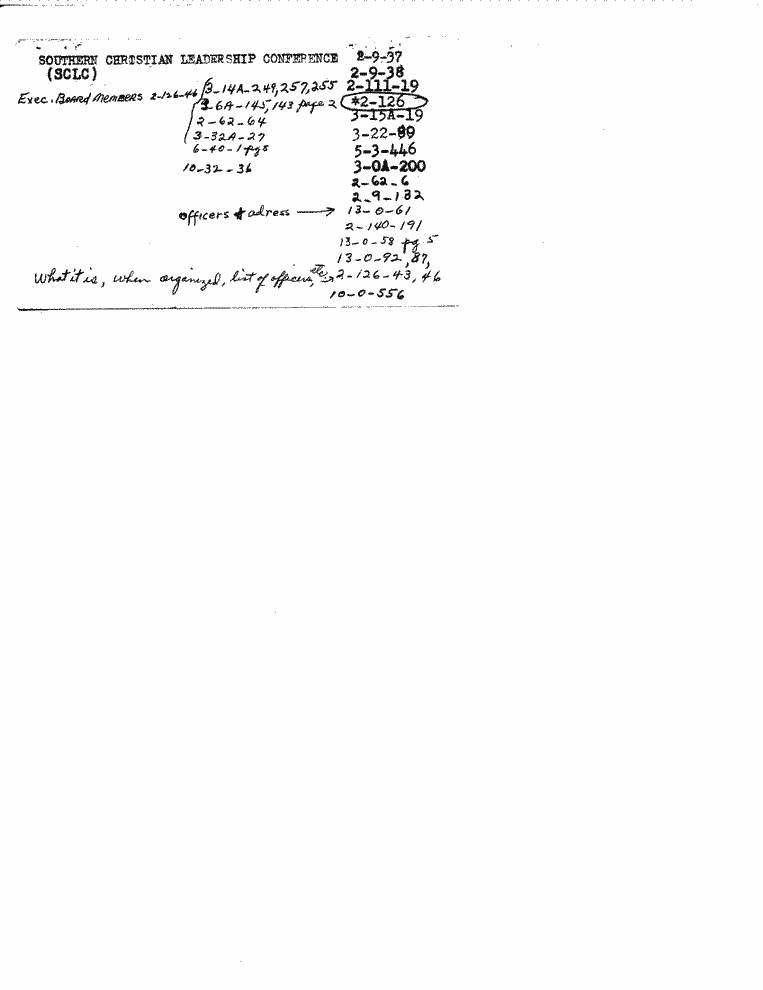 SOUTHERN CHRISTIAN LEADERSHIP CONFERENCE 2-9-37
(SCLC) 2-9-38
Exec. Board Members 2-126-46 3-14A-249,257,255 2-111-19
3-6A-145,143 page 2 *2-126
2-62-64 3-15A-19
3-32A-27 3-22-89
6-40-1 pg 5 5-3-446
10-32-36 3-0A-200
2-62-6
2-9-132
officers & adress → 13-0-61
2-140-191
13-0-58 pg 5
13-0-92, 87,
What it is, when organized, list of officers, etc 2-126-43, 46
10-0-556